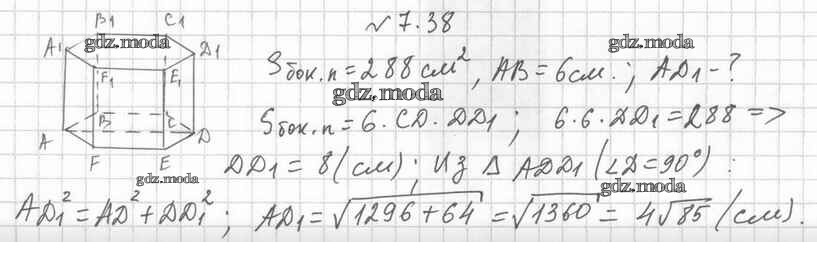 № 7.38
B1 C1
A1 D1
F1 E1
B C
A D
F E
gdz.moda
gdz.moda
Sбок.п = 288 см², AB = 6 см. ; AD1 - ?
gdz.moda
Sбок.п = 6 · CD · DD1 ; 6 · 6 · DD1 = 288 =>
DD1 = 8 (см) ; Из △ ADD1 (∠D = 90°) :
gdz.moda
gdz.moda
AD1² = AD² + DD1² ; AD1 = √1296 + 64 = √1360 = 4√85 (см).